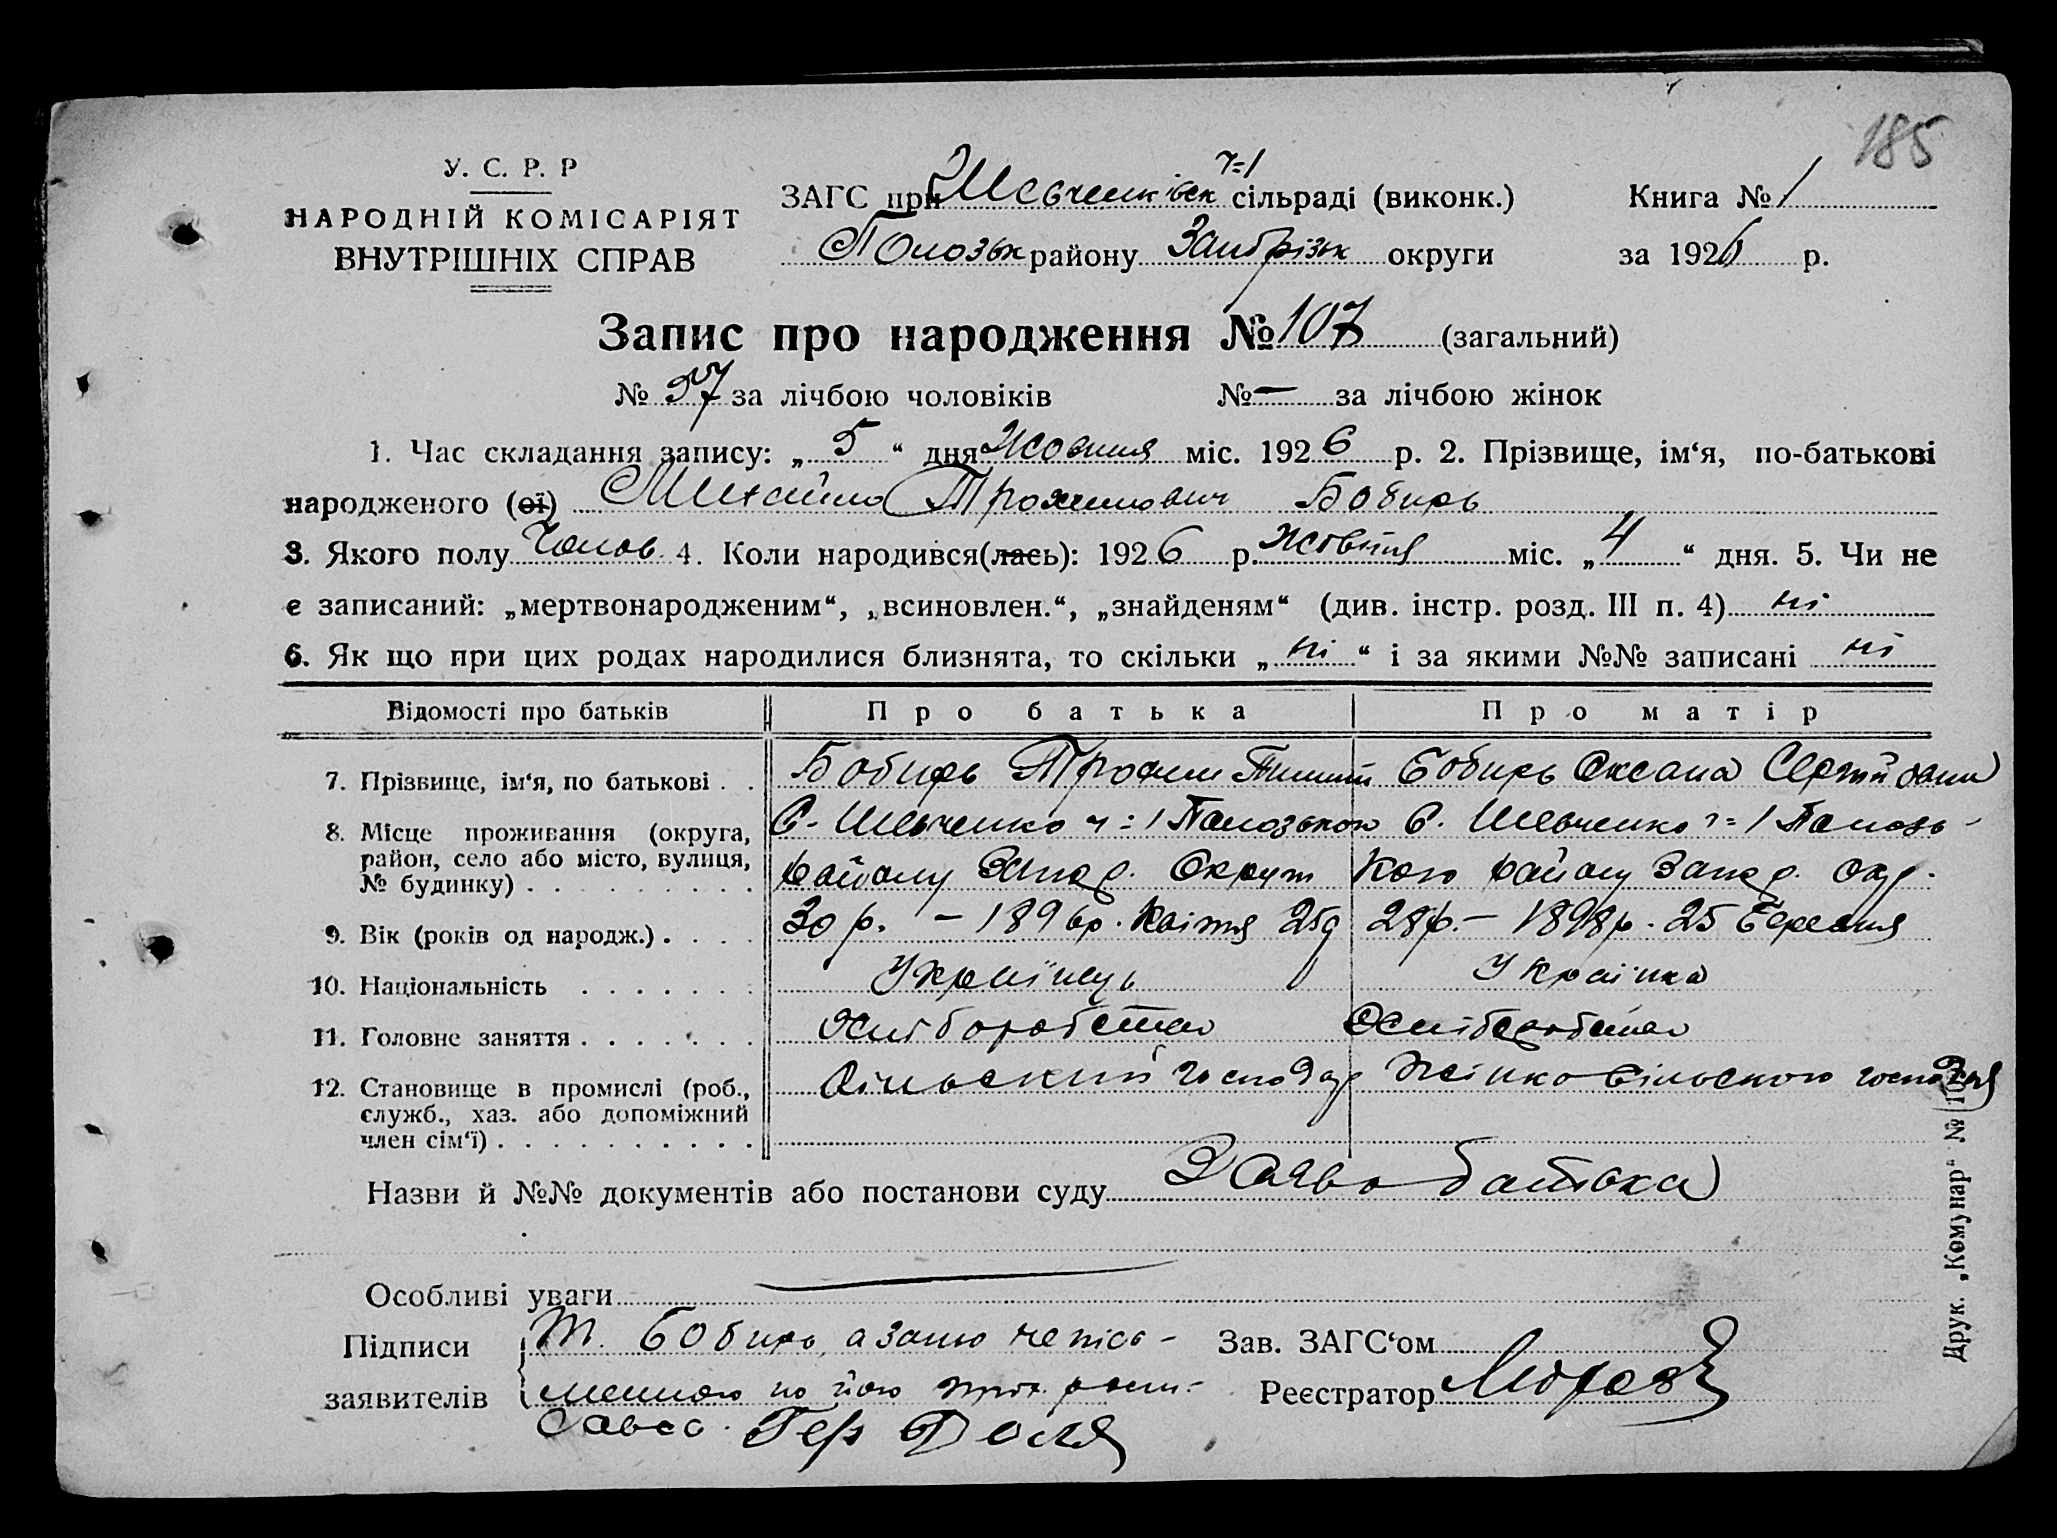 185
У. С. Р. Р
НАРОДНІЙ КОМІСАРІЯТ
ВНУТРІШНІХ СПРАВ
ЗАГС при Шевченківск ч=1 сільраді (виконк.) Книга № 1
Полозьк району Запорізьк округи за 1926 р.
Запис про народження № 107 (загальний)
№ 57 за лічбою чоловіків № — за лічбою жінок
1. Час складання запису: „ 5 “ дня Жовтня міс. 1926 р. 2. Прізвище, ім‘я, по-батькові
народженого (ої) Михайло Трохимович Бобирь
3. Якого полу Чолов. 4. Коли народився(лась): 1926 р. Жовтня міс. „ 4 “ дня. 5. Чи не
є записаний: „мертвонародженим“, „всиновлен.“, „знайденям“ (див. інстр. розд. III п. 4) ні
6. Як що при цих родах народилися близнята, то скільки „ ні “ і за якими №№ записані ні
Відомості про батьків Про батька Про матір
7. Прізвище, ім‘я, по батькові . . Бобирь Трохим Бобирь Оксана
8. Місце проживання (округа, район, село або місто, вулиця, № будинку) . . . . . . . . . С. Шевченко ч=1 Полозького С. Шевченко ч=1 Полозь-
району Запор. Округи кого району Запор. Окр.
9. Вік (років од народж.) . . . . 30 р. – 1896р. Квітня 25д 28р. – 1898р. 25 Березня
10. Національність . . . . . . . Українець Українка
11. Головне заняття . . . . . . . Хлібороבство Хліборобство
12. Становище в промислі (роб., служб., хаз. або допоміжний член сім‘ї) . . . . . . . . . . . Сільский господар Жінка сільского господаря
Назви й №№ документів або постанови суду Заява батька
Особливі уваги
Підписи Т. Бобирь, а за його непись- Зав. ЗАГС‘ом
заявителів менного по його Реєстратор Мороз
Доля
Друк. „Комунар“ №